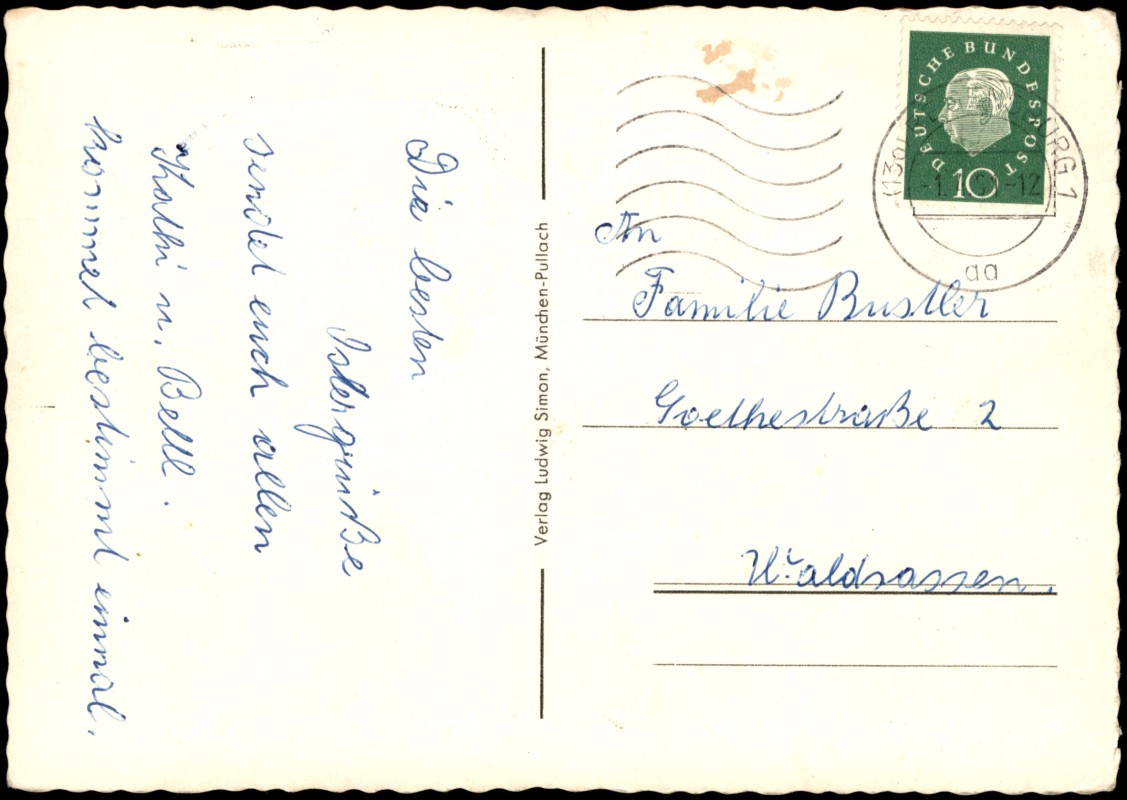 Die besten
Ostergrüße
sendet euch allen
Kathi u. Bettl.
kommet bestimmt einmal.
Verlag Ludwig Simon, München-Pullach
DEUTSCHE BUNDESPOST
10
URG 1
-12
aa
An
Familie Bustler
Goethestraße 2
Waldsassen.